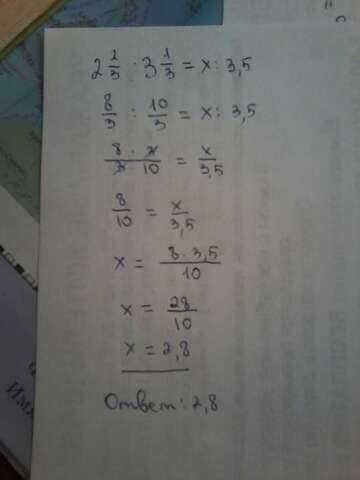 2 2/3 : 3 1/3 = x : 3,5
8/3 : 10/3 = x : 3,5
8 · 3/3 · 10 = x/3,5
8/10 = x/3,5
x = 8 · 3,5/10
x = 28/10
x = 2,8
Ответ: 2,8